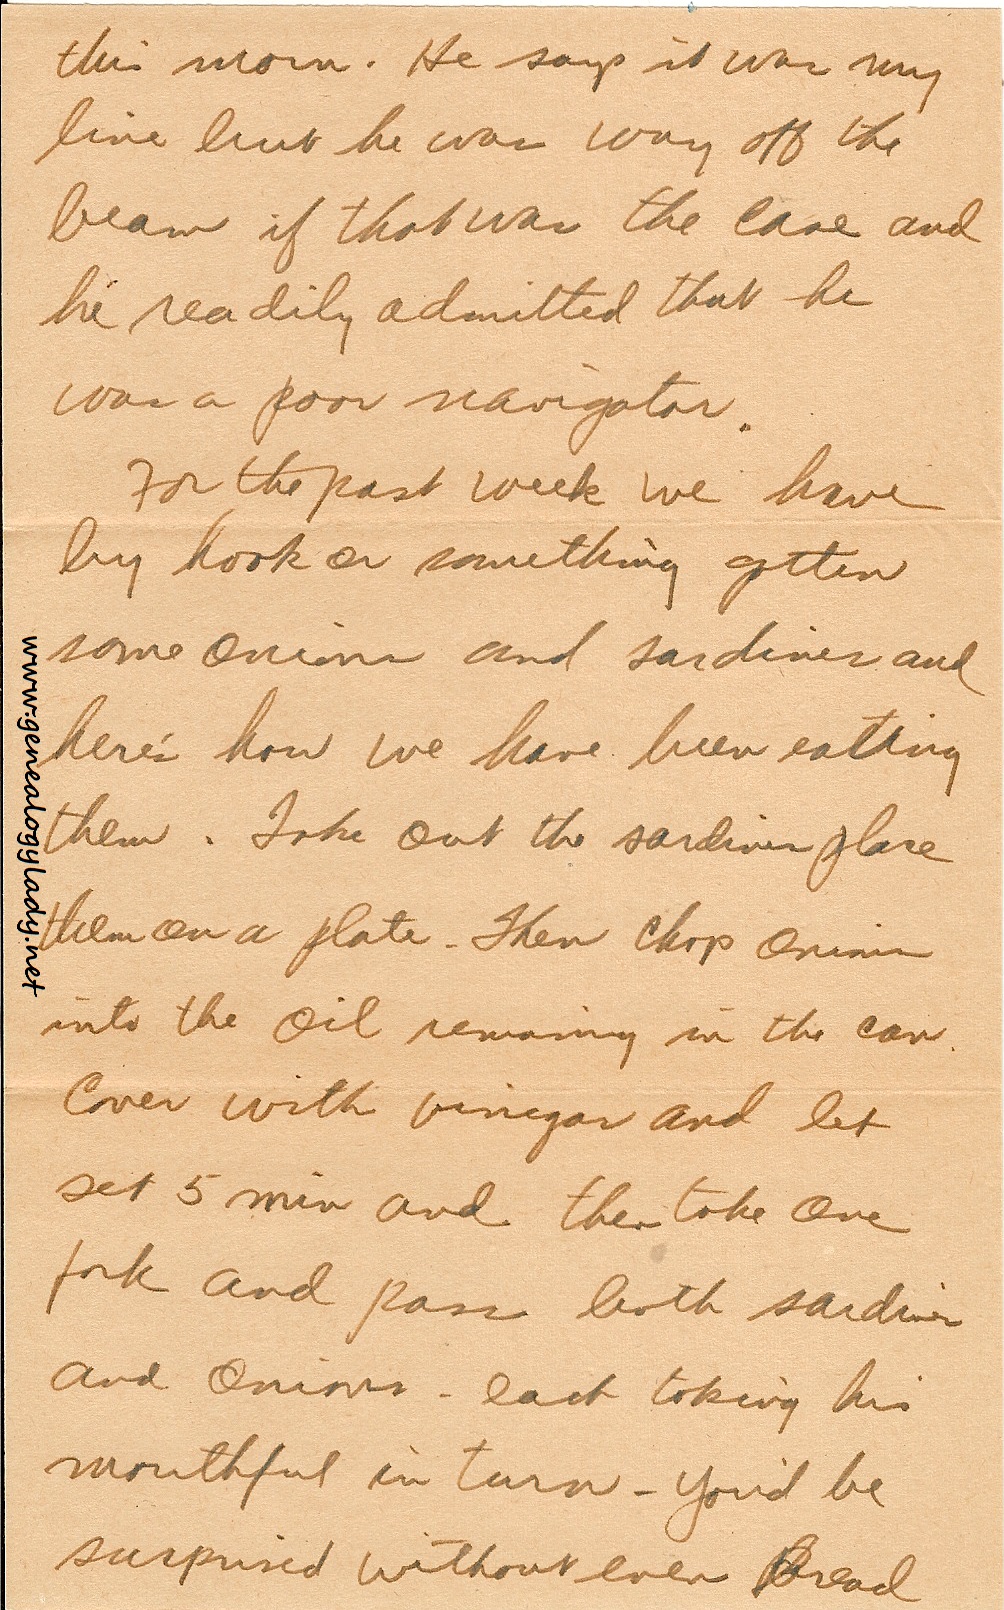 this morn. He says it was my
line but he was way off the
beam if that was the case and
he readily admitted that he
was a poor navigator.
For the past week we have
by hook or something gotten
some onions and sardines and
here's how we have been eating
them. Take out the sardines place
them on a plate - Then chop onions
into the oil remaining in the can.
Cover with vinegar and let
set 5 min and then take one
fork and pass both sardines
and onions - each taking his
mouthful in turn - you'd be
surprised without even Bread
www.genealogylady.net